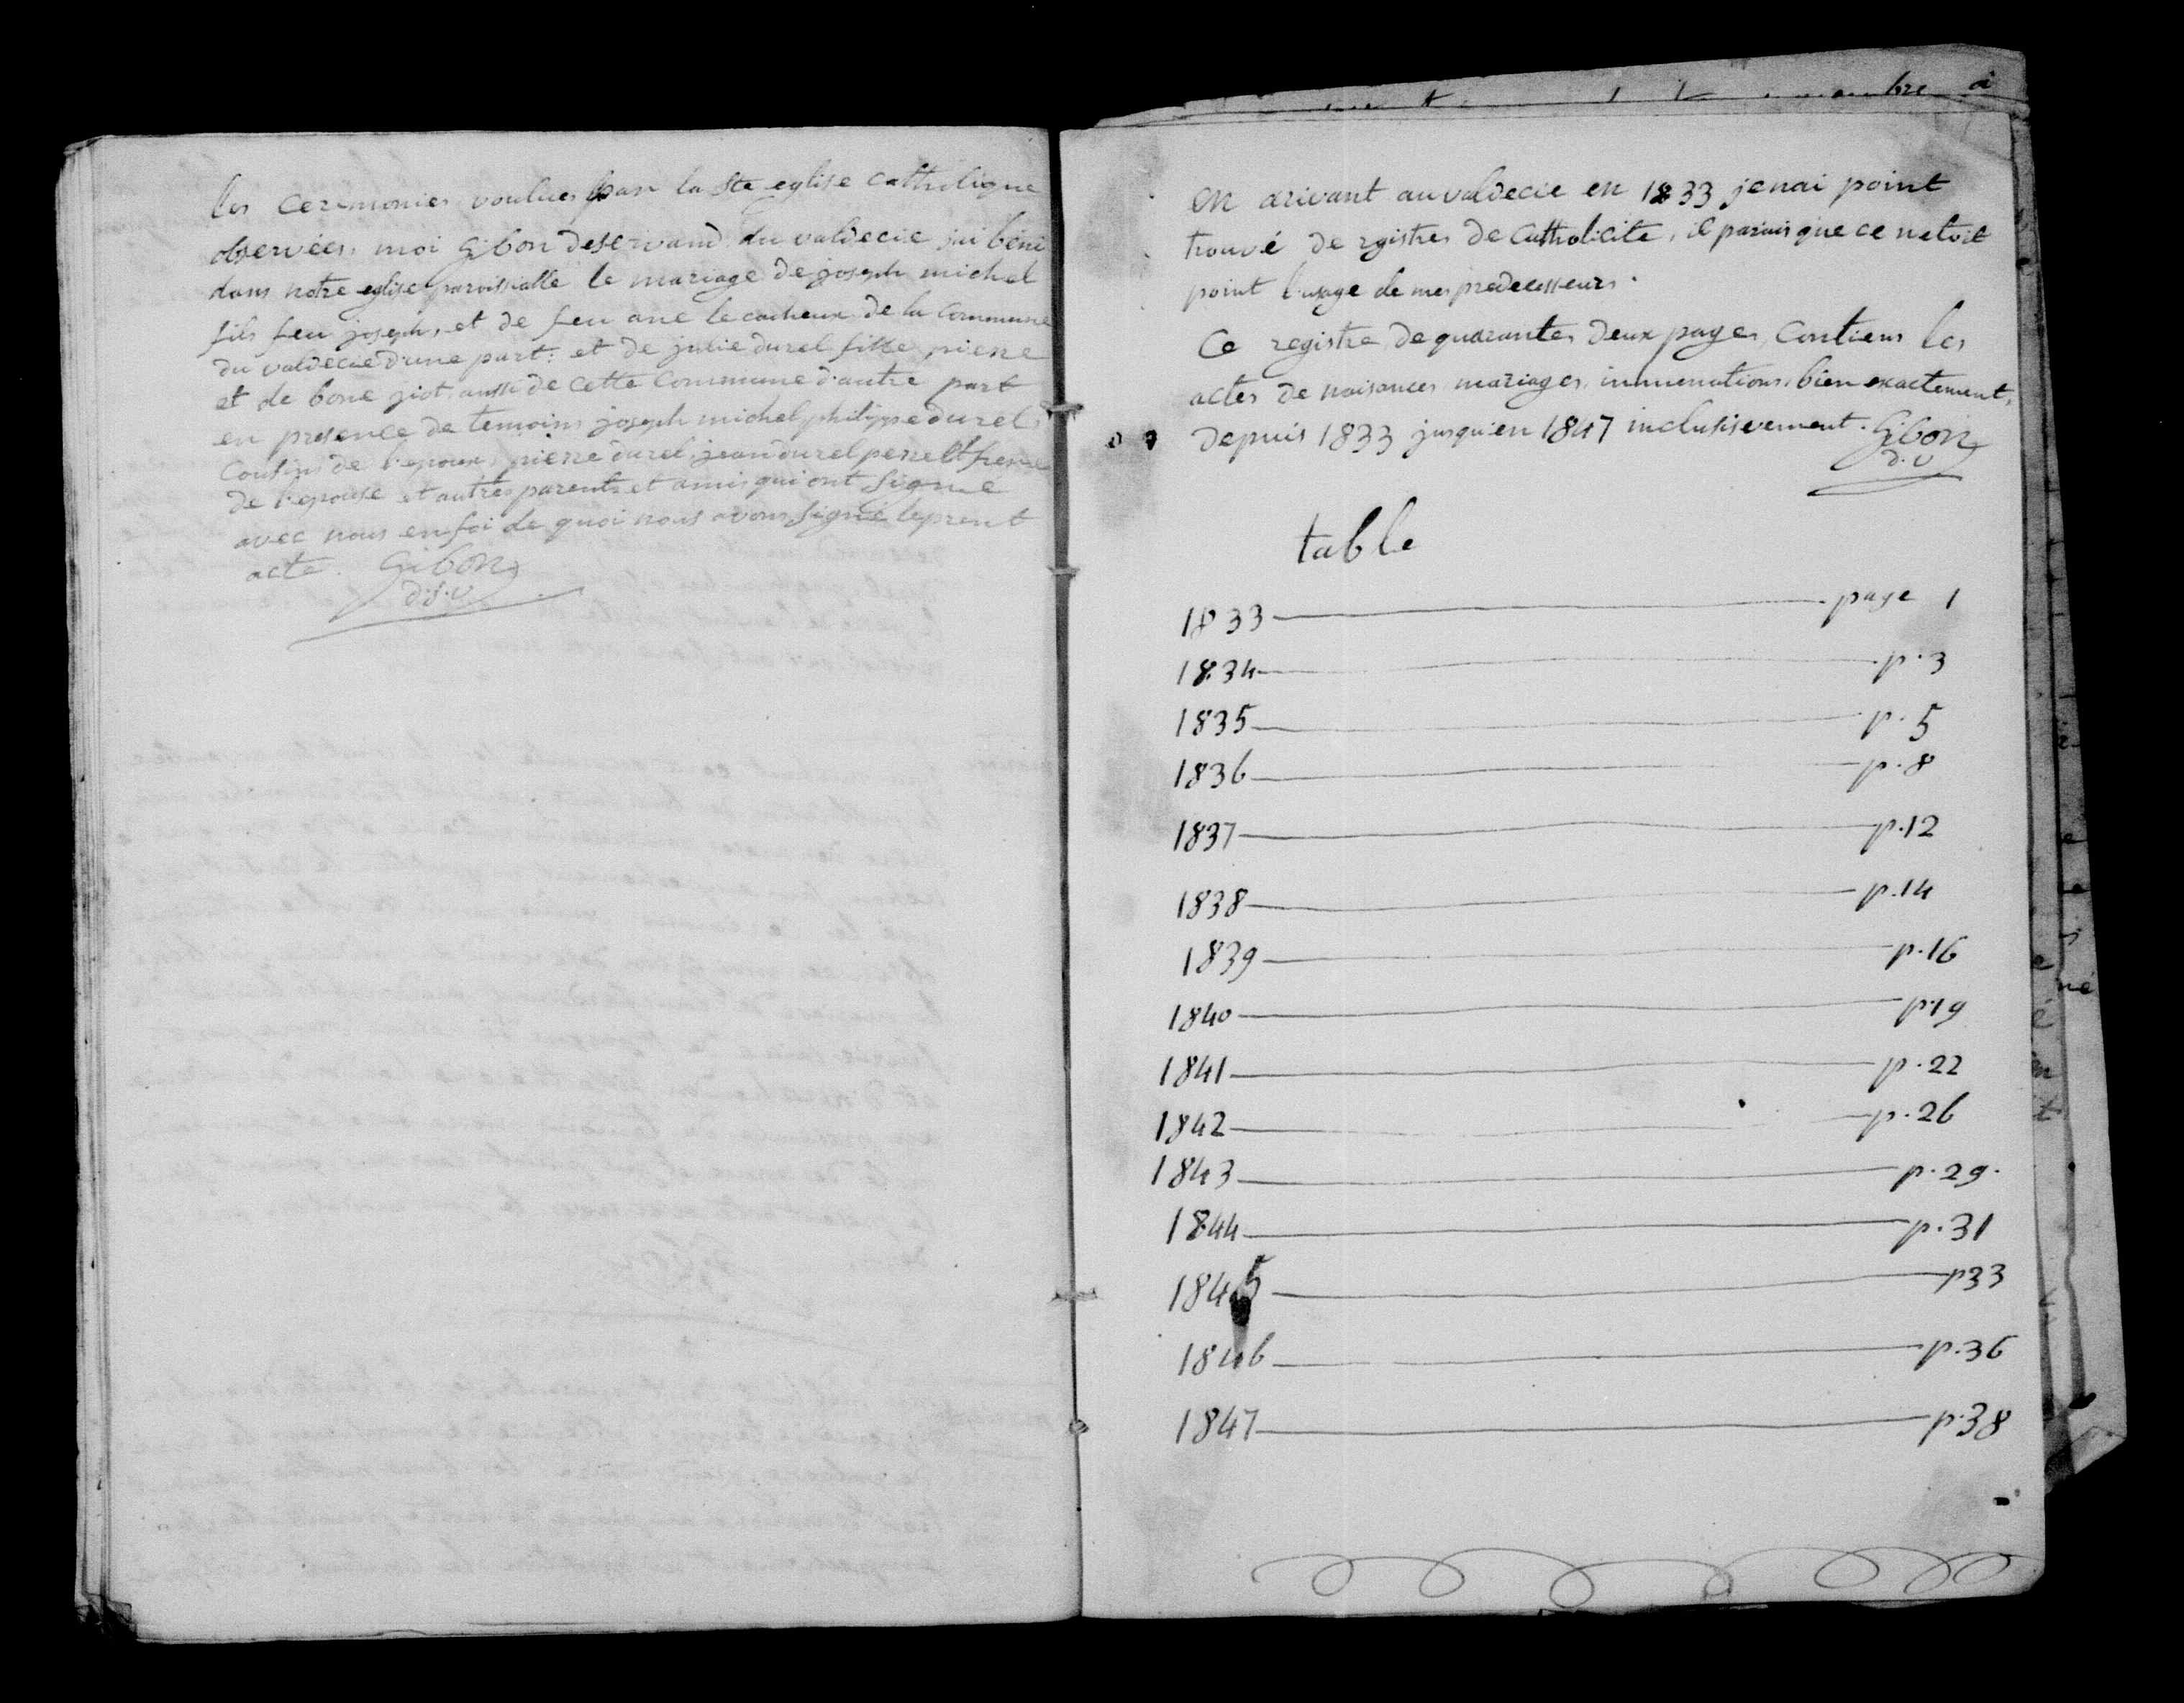 les ceremonies voulues par la Ste eglise catholique
observées, moi Gibon deservand du valdecie jai béni
dans notre eglise paroissialle le mariage de joseph michel
fils feu joseph, et de feu ane lecacheux de la Commune
du valdecie d'une part: et de julie durel fille piere
et de bone giot aussi de cette Commune d'autre part
en presence de temoins joseph michel philippe durel
cousins de l'epoux, piere durel, jean durel pere et frere
de l'epouse et autres parents et amis qui ont signé
avec nous en foi de quoi nous avons signé le prent
acte. Gibon
d.s.v
bre à
en arivant au valdecie en 1833 je nai point
trouvé de rgistres de Catholicite, il parais que ce netoit
point l'usage de mes predecesseurs.
Ce registre de quarantes deux pages Contiens les
actes de naisances mariages, inhumations, bien exactement,
depuis 1833 jusqu'en 1847 inclusivement. Gibon
d.v
table
1833 page 1
1834 p.3
1835 p.5
1836 p.8
1837 p.12
1838 p.14
1839 p.16
1840 p19
1841 p.22
1842 p.26
1843 p.29.
1844 p.31
1845 p33
1846 p.36
1847 p.38